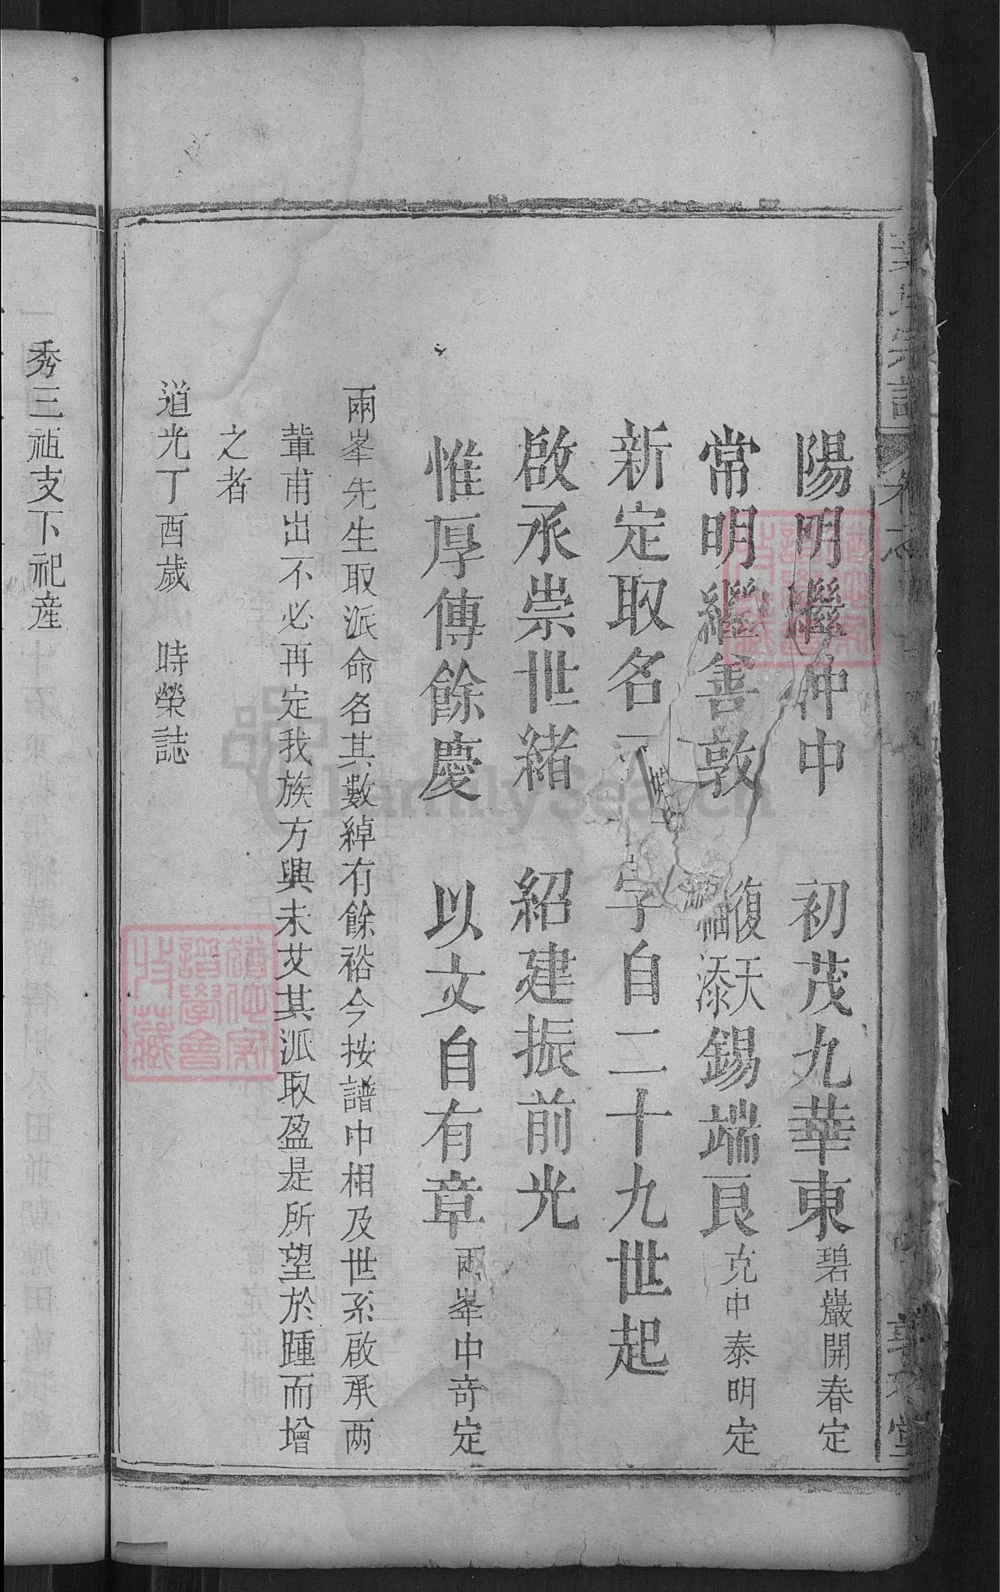 陽明繼仲中　初茂九華東　碧巖開春定
常明繼善敦　復天錫端良　克中泰明定
福添
新定取名　字自二十九世起
啟承崇世緒　紹建振前光
惟厚傳餘慶　以文自有章　兩峯中奇定
兩峯先生取派命名其數綽有餘裕今按譜中相及世系啟承两
輩甫出不必再定我族方興未艾其派取盈是所望於踵而增
之者
道光丁酉歲　時榮誌
秀三祖支下祀産